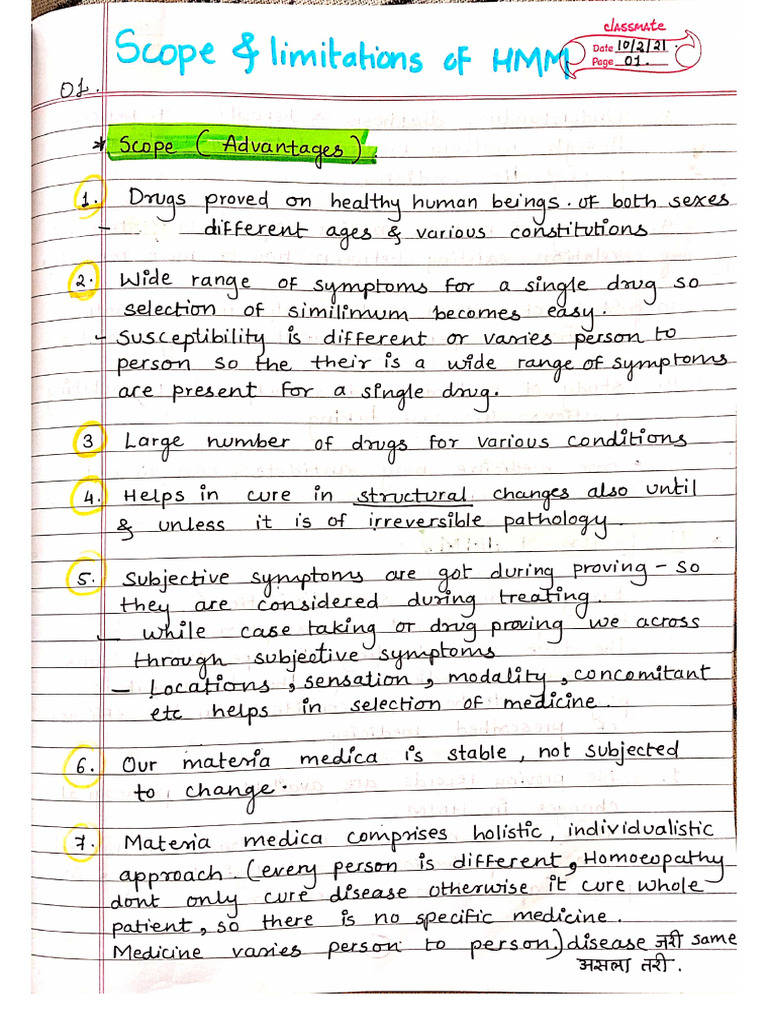 classmate
Scope & limitations of HMM
Date 10/2/21
Page 01.
01.
* Scope ( Advantages ).
1. Drugs proved on healthy human beings. of both sexes
- different ages & various constitutions
2. Wide range of symptoms for a single drug so
selection of similimum becomes easy.
- Susceptibility is different or varies person to
person so the their is a wide range of symptoms
are present for a single drug.
3 Large number of drugs for various conditions
4. Helps in cure in structural changes also until
& unless it is of irreversible pathology.
5. Subjective symptoms are got during proving - so
they are considered during treating.
- while case taking or drug proving we across
through subjective symptoms
- Locations, sensation, modality, concomitant
etc helps in selection of medicine.
6. Our materia medica is stable, not subjected
to change.
7. Materia medica comprises holistic, individualistic
approach. (every person is different, Homoeopathy
dont only cure disease otherwise it cure whole
patient, so there is no specific medicine.
Medicine varies person to person.) disease जरी same
असला तरी.